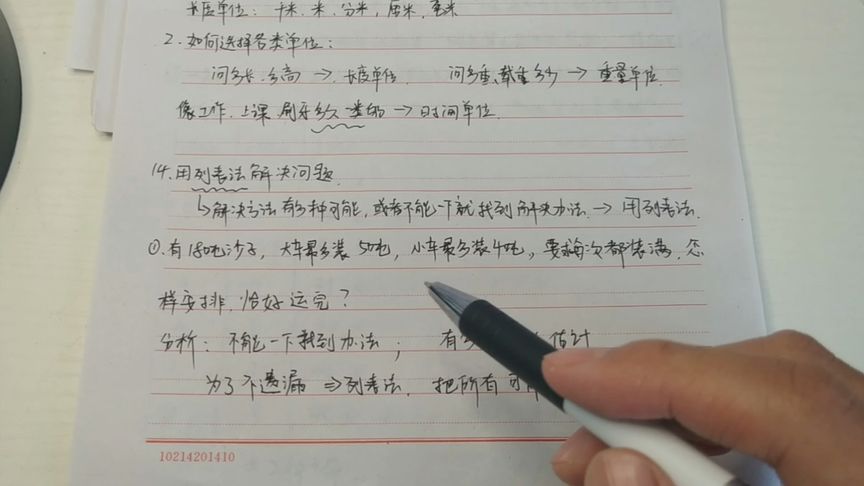 长度单位：千米.米.分米,厘米,毫米
2.如何选择各类单位：
问多长.多高→.长度单位. 问多重、载重多少→重量单位.
像工作.上课.刷牙多久类的→时间单位.
14.用列表法解决问题.
↳解决方法有多种可能,或者不能一下就找到解决办法.→用列表法.
①.有180吨沙子,大车最多装50吨,小车最多装40吨,要求每次都装满.怎
样安排.恰好运完？
分析：不能一下找到办法；有 估计
为了不遗漏⇒列表法.把所有可
10214201410